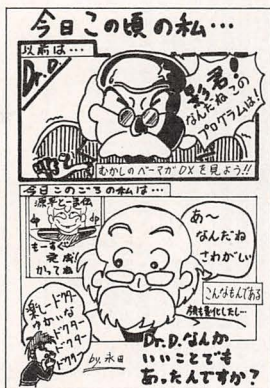 今日この頃の私…
以前は…
Dr.D.
影君!
なんだねこの
プログラムは!
むかしのベーマガDXを見よう!!
今日このごろの私は…
源平とーま伝
もーすぐ
完成!
かってね
あ〜
なんだね
さわがしい
こんなもんである
楽しードクター
ゆかいな
ドクター
ドクター
ドクター
by.永田
Dr.D.なんか
いいことでも
あったんですか?